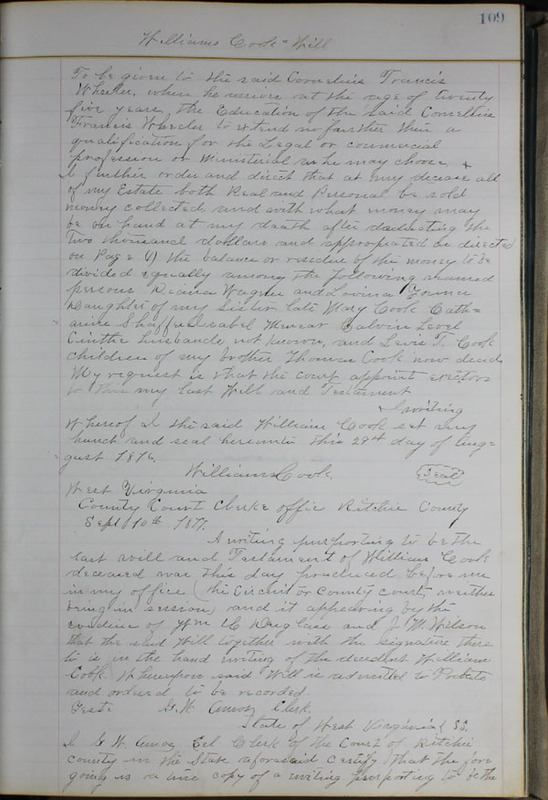 109
Williams Cook Will
To be given to the said Cornelius Francis
Wheeler, when he arives at the age of twenty
five years, the Education of the said Cornelius
Francis Wheeler to extend no farther then a
qualification for the Legal or commercial
profession or Ministerial as he may choose, &
I further order and direct that at my decease all
of my Estate both Real and Personal be sold
money collected, and with what money may
be on hand at my death after deducting the
Two thousand dollars and appropriated as directed
on Page (1) the balance or residue of the money to be
divided equally among the following named
persons Diana Wagner and Lovina
Daughters of my Sister late Mary Cook Cath=
arine Isabel Calvin
husbands not known, and Lewis T. Cook
children of my brother Thomas Cook now decd
My request is that the court appoint
to this my last Will and Testament
In writing
Whereof I the said William Cook set my
hand and seal hereunto this 29th day of Aug=
gust 1876.
Williams Cook Seal
West Virginia
County Court Clerks office Ritchie County
Sept 10th 187
A writing purporting to be the
last will and Testament of William Cook
deceased was this day produced before me
in my office (the Circuit or County court, neither
being in session) and it appearing by the
evidence of Wm and J. M. Wilson
that the said Will together with the signature there
to is in the hand writing of the decedent William
Cook, Whereupon said Will is admitted to Probate
and ordered to be recorded
Teste. G. W. Amos, Clerk
State of West Virginia SS.
I G. W. Amos, Clerk of the Court of Ritchie
county in the State aforesaid certify that the fore
going is a true copy of a writing purporting to be the